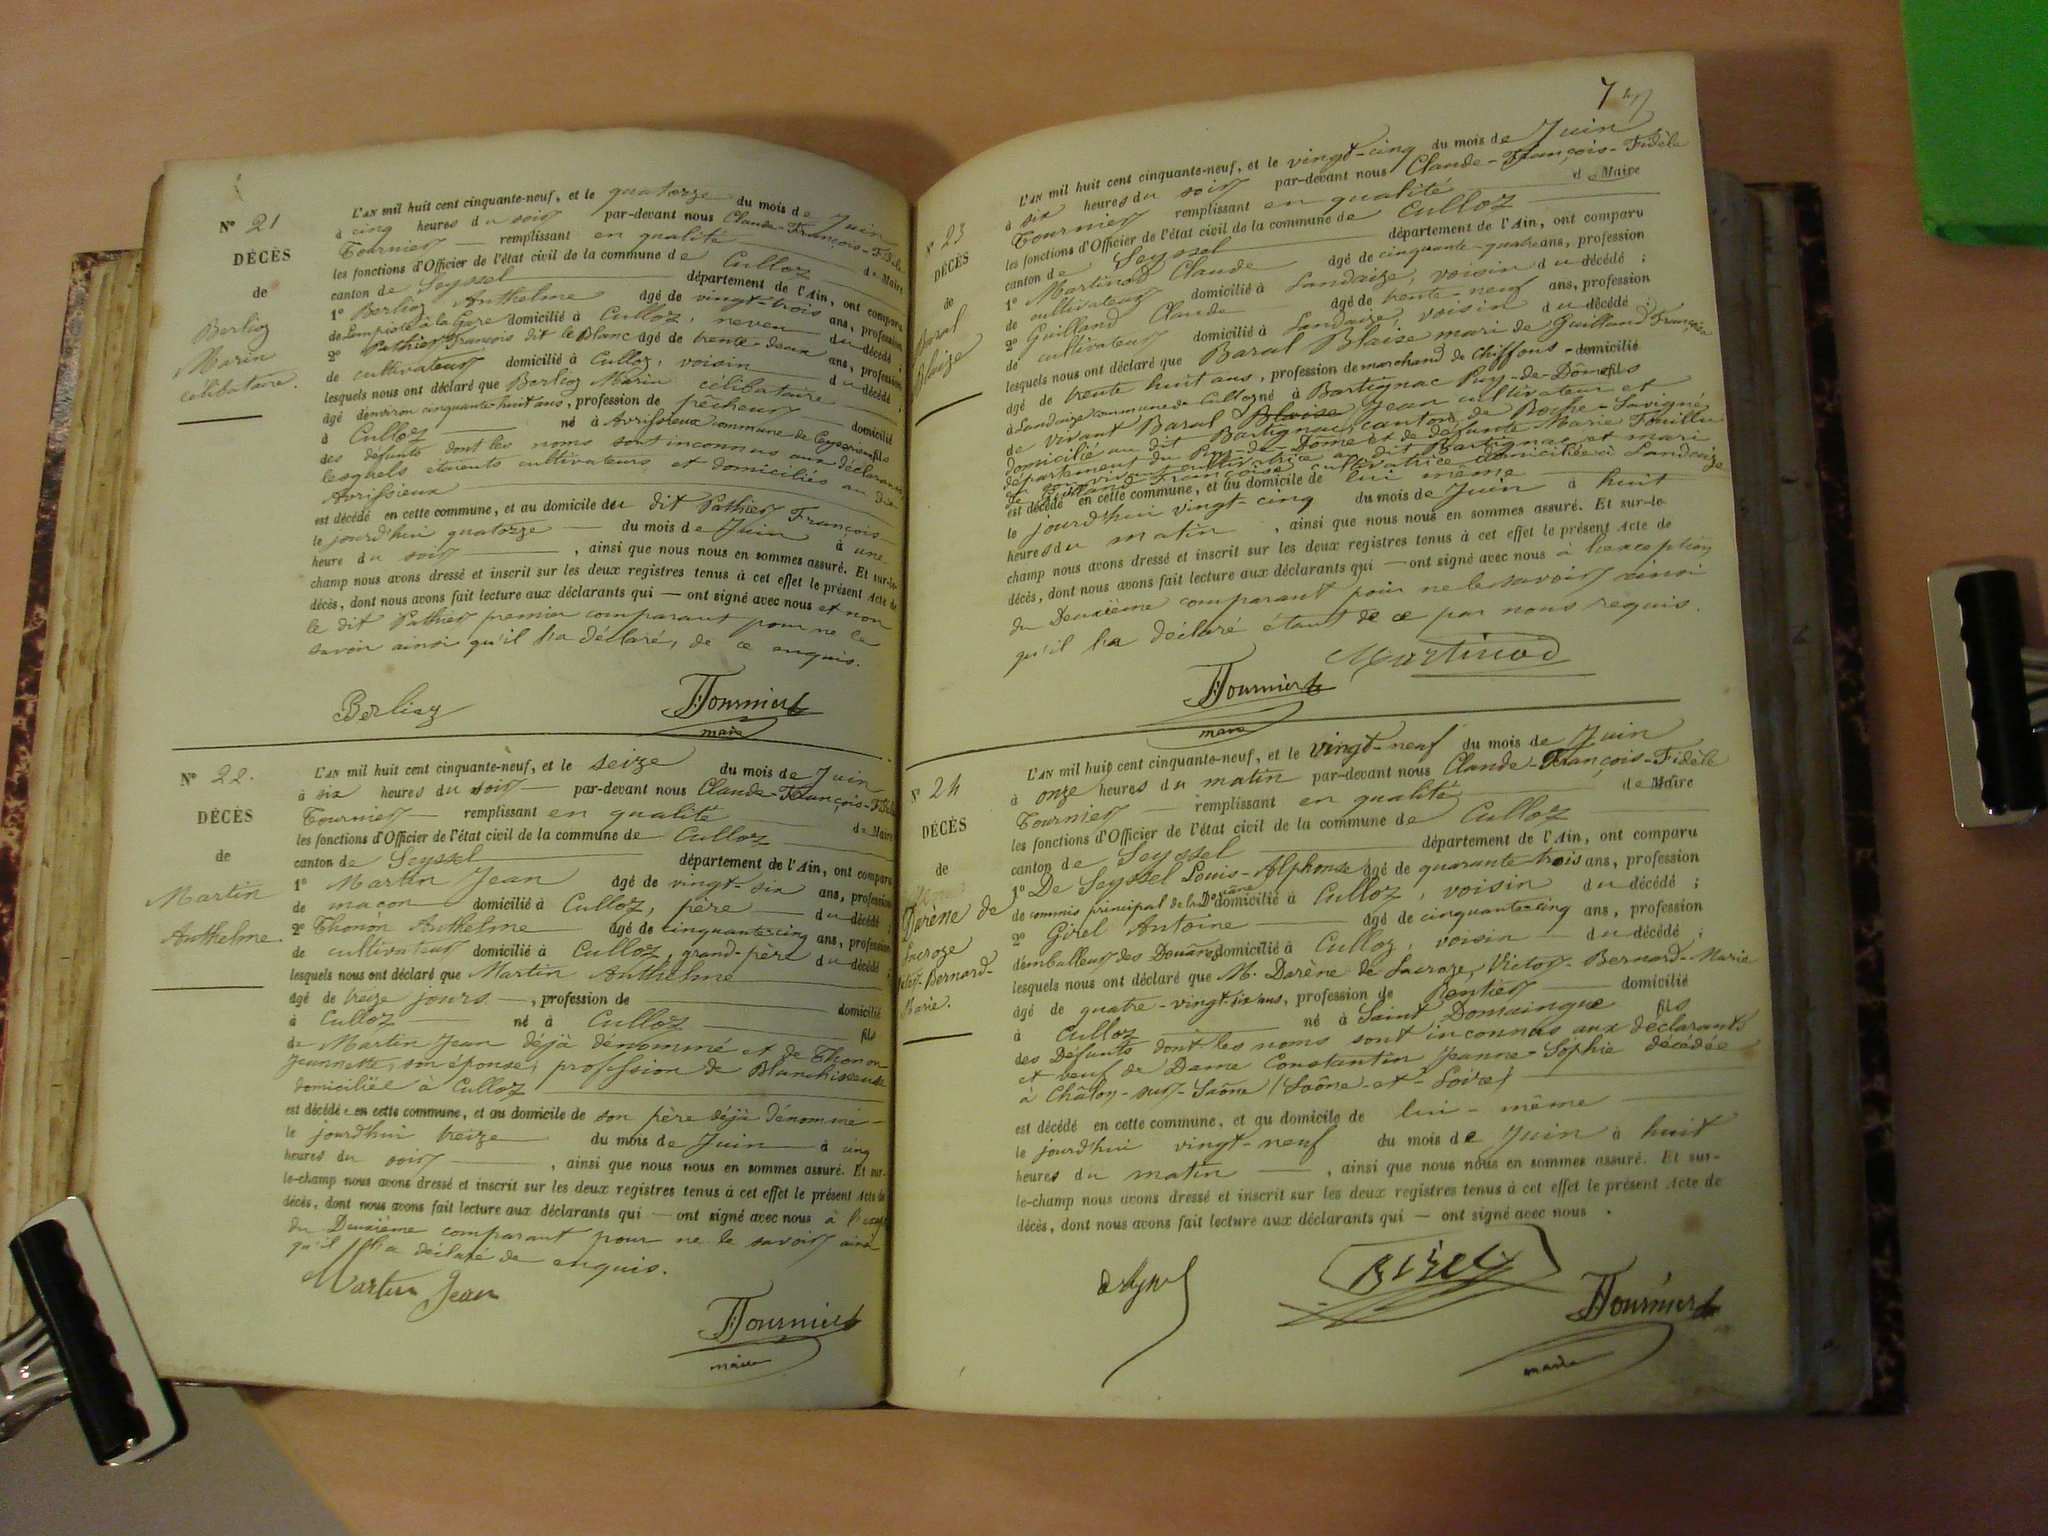 N° 21
DÉCÈS
de
Berlioz
Marin
célibataire.
L'AN mil huit cent cinquante-neuf, et le quatorze du mois de Juin
à cinq heures du soir par-devant nous Claude-François-Fidèle
Tournier remplissant en qualité de Maire
les fonctions d'Officier de l'état civil de la commune de Culloz
canton de Seyssel département de l'Ain, ont comparu
1° Berlioz Anthelme âgé de vingt-trois ans, profession
d'Employé à la Gare domicilié à Culloz, neveu du décédé
2° Pathier François dit le Blanc âgé de trente-deux ans, profession
de cultivateur domicilié à Culloz, voisin du décédé ;
lesquels nous ont déclaré que Berlioz Marin célibataire
âgé d'environ cinquante-huit ans, profession de pêcheur domicilié
à Culloz né à Avrissieux commune de fils
des défunts dont les noms sont inconnus aux déclarants
lesquels étaient cultivateurs et domiciliés au dit
Avrissieux
est décédé en cette commune, et au domicile du dit Pathier François
le jourd'hui quatorze du mois de Juin à une
heure du soir , ainsi que nous nous en sommes assuré. Et sur-le-
champ nous avons dressé et inscrit sur les deux registres tenus à cet effet le présent Acte de
décès, dont nous avons fait lecture aux déclarants qui — ont signé avec nous et non
le dit Pathier premier comparant pour ne le
savoir ainsi qu'il l'a déclaré, de ce enquis.
Berlioz
Tournier
maire
N° 22.
DÉCÈS
de
Martin
Anthelme.
L'AN mil huit cent cinquante-neuf, et le seize du mois de Juin
à six heures du soir par-devant nous Claude-François-Fidèle
Tournier remplissant en qualité de Maire
les fonctions d'Officier de l'état civil de la commune de Culloz
canton de Seyssel département de l'Ain, ont comparu
1° Martin Jean âgé de vingt-six ans, profession
de maçon domicilié à Culloz, père du décédé ;
2° Thonon Anthelme âgé de cinquante-cinq ans, profession
de cultivateur domicilié à Culloz, grand-père du décédé ;
lesquels nous ont déclaré que Martin Anthelme
âgé de treize jours , profession de domicilié
à Culloz né à Culloz fils
de Martin Jean déjà dénommé et de Thonon
Jeannette, son épouse, profession de Blanchisseuse
domiciliée à Culloz
est décédé en cette commune, et au domicile de son père déjà dénommé
le jourd'hui treize du mois de Juin à cinq
heures du soir , ainsi que nous nous en sommes assuré. Et sur-
le-champ nous avons dressé et inscrit sur les deux registres tenus à cet effet le présent Acte de
décès, dont nous avons fait lecture aux déclarants qui — ont signé avec nous à
du Deuxième comparant pour ne le savoir ainsi
qu'il l'a déclaré de enquis.
Martin Jean
Tournier
maire
7
N° 23
DÉCÈS
de
Baral
Blaize
L'AN mil huit cent cinquante-neuf, et le vingt-cinq du mois de Juin
à six heures du soir par-devant nous Claude-François-Fidèle
Tournier remplissant en qualité de Maire
les fonctions d'Officier de l'état civil de la commune de Culloz
canton de Seyssel département de l'Ain, ont comparu
1° Martinod Claude âgé de cinquante-quatre ans, profession
de cultivateur domicilié à Landaize, voisin du décédé ;
2° Guilland Claude âgé de trente-neuf ans, profession
de cultivateur domicilié à Landaize, voisin du décédé ;
lesquels nous ont déclaré que Baral Blaise mari de Guilland Françoise
âgé de trente huit ans, profession de marchand de chiffons domicilié
à Landaize commune de Culloz né à Bartignac Puy-de-Dôme fils
de vivant Baral Blaise Jean cultivateur et
domicilié au dit Bartignac, canton de Roche-Savigné
département du Puy-de-Dôme et de défunte Marie Fouillu
de son vivant cultivatrice au dit Bartignac et mari
de Guilland Françoise cultivatrice domiciliée à Landaize
est décédé en cette commune, et au domicile de lui même
le jourd'hui vingt-cinq du mois de Juin à huit
heures du matin , ainsi que nous nous en sommes assuré. Et sur-le-
champ nous avons dressé et inscrit sur les deux registres tenus à cet effet le présent Acte de
décès, dont nous avons fait lecture aux déclarants qui — ont signé avec nous à l'exception
du Deuxième comparant pour ne le savoir ainsi
qu'il l'a déclaré étant de ce par nous requis.
Martinod
Tournier
maire
N° 24
DÉCÈS
de
Darène de
Lacroze
Victor-Bernard-
Marie.
L'AN mil huit cent cinquante-neuf, et le vingt-neuf du mois de Juin
à onze heures du matin par-devant nous Claude-François-Fidèle
Tournier remplissant en qualité de Maire
les fonctions d'Officier de l'état civil de la commune de Culloz
canton de Seyssel département de l'Ain, ont comparu
1° De Seyssel Louis-Alphonse âgé de quarante-trois ans, profession
de commis principal de la Douane domicilié à Culloz, voisin du décédé ;
2° Girel Antoine âgé de cinquante-cinq ans, profession
d'emballeur des Douanes domicilié à Culloz, voisin du décédé ;
lesquels nous ont déclaré que M. Darène de Lacroze, Victor-Bernard-Marie
âgé de quatre-vingt-six ans, profession de Rentier domicilié
à Culloz né à Saint Domaingue fils
des Défunts dont les noms sont inconnus aux déclarants
et veuf de Dame Constantin Jeanne-Sophie décédée
à Châlon-sur-Saône (Saône-et-Loire)
est décédé en cette commune, et au domicile de lui-même
le jourd'hui vingt-neuf du mois de Juin à huit
heures du matin , ainsi que nous nous en sommes assuré. Et sur-
le-champ nous avons dressé et inscrit sur les deux registres tenus à cet effet le présent Acte de
décès, dont nous avons fait lecture aux déclarants qui — ont signé avec nous .
Girel
Tournier
maire